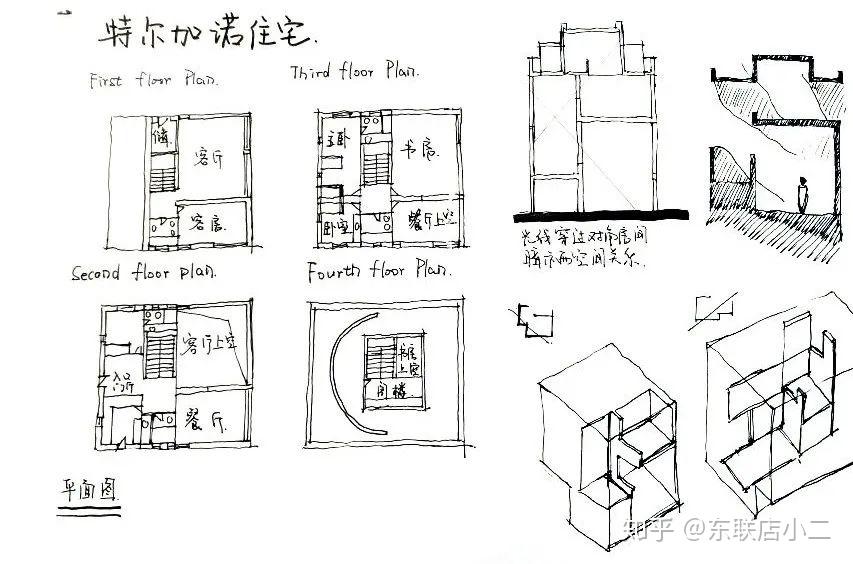 特尔加诺住宅.
First floor Plan.
Third floor Plan.
储
客厅
客房.
主卧
书房
卧室
餐厅上空
Second floor plan.
Fourth floor Plan.
客厅上空
入口
门厅
餐厅
书房
上空
阁楼
平面图
光线穿过对角房间
暗示两空间关系.
知乎 @东联店小二